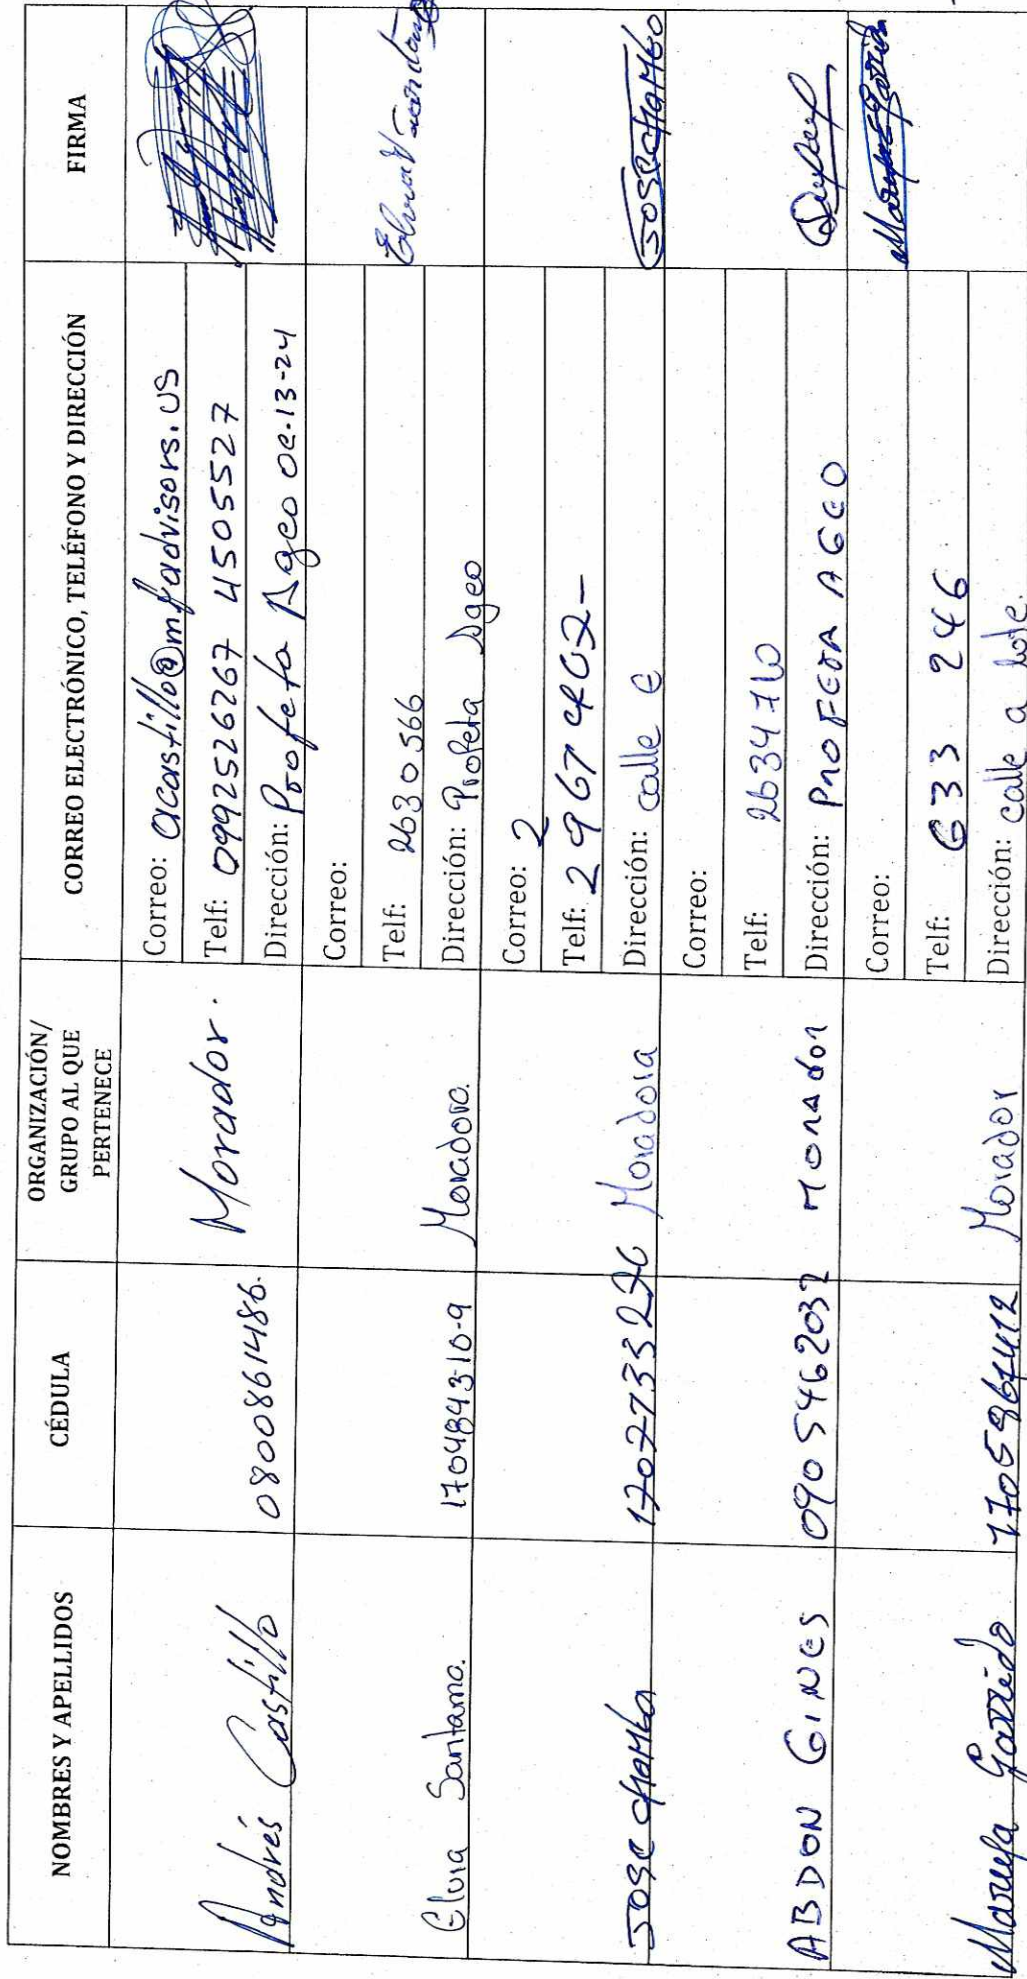 NOMBRES Y APELLIDOS CÉDULA ORGANIZACIÓN/ GRUPO AL QUE PERTENECE CORREO ELECTRÓNICO, TELÉFONO Y DIRECCIÓN FIRMA
Andrés Castillo 0800861486. Morador.
Correo: acastillo@mfadvisors.us
Telf: 0992526267 4505527
Dirección: Profeta Ageo Oe-13-24
Elvia Santama. 170484310-9 Moradora.
Correo:
Telf: 2630566
Dirección: Profeta Ageo
JOSE CHAMBA 1707733276 Moradora
Correo: 2
Telf: 2967402-
Dirección: calle E
JOSE CHAMBO
ABDON GINES 0905462032 MORADOR
Correo:
Telf: 2634710
Dirección: PROFETA AGEO
Maruja Garrido 1705967412 Morador
Correo:
Telf: 633 246
Dirección: calle a lote.
Maruja Garrido